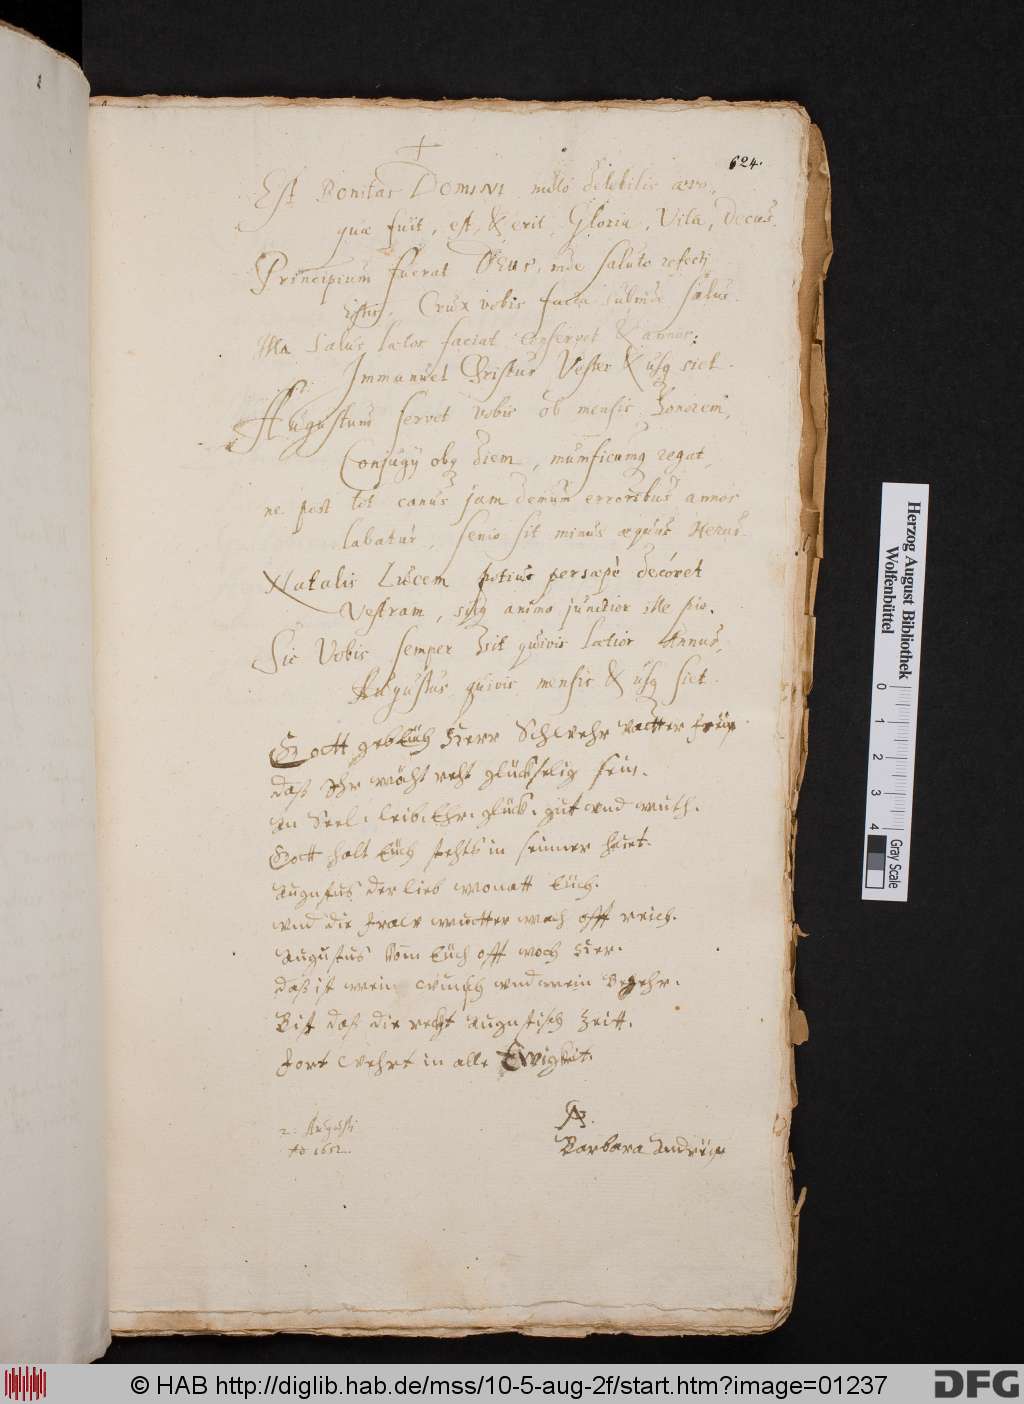 624.
Est Bonitas DOMINI nullo delebilis ævo,
quæ fuit, est, & erit, Gloria, Vita, Decus.
Principium fuerat Deus, inde salute refecti
Crux vobis facta subinde salus.
Illa Salus lætos faciat conservet & annos:
Immanuel Christus Vester & usq siet.
Augustum servet vobis ob mensis honorem,
Conjugij obq diem, munificumq regat,
ne post tot canus jam demum erroribus annos
labatur, senio sit minus æquus Herus.
Natalis Lucem potius persæpè decóret
Vestram, sitq animo junctior ille pio.
Sic Vobis semper sit quivis lætior Annus,
Augustus quivis mensis & usq siet.
Gott geb Eüch Herr Schwehr Vatter
daß Ihr mögt recht glückselig sein.
An Seel. leib. Ehr. glück. gut und muth.
Gott halt Eüch stehts in seinner huet.
Augustus der lieb monatt Eüch.
und die fraw mutter mach offt reich.
Augustus kom Eüch offt noch her.
daß ist mein wunsch und mein Begehr.
Biß daß die recht Augustisch Zeitt.
fort wehrt in alle Ewigkeit.
2. Augusti
Ao 1652.
Barbara Andreæ
Herzog August Bibliothek
Wolfenbüttel
0 1 2 3 4
Gray Scale
© HAB http://diglib.hab.de/mss/10-5-aug-2f/start.htm?image=01237
DFG